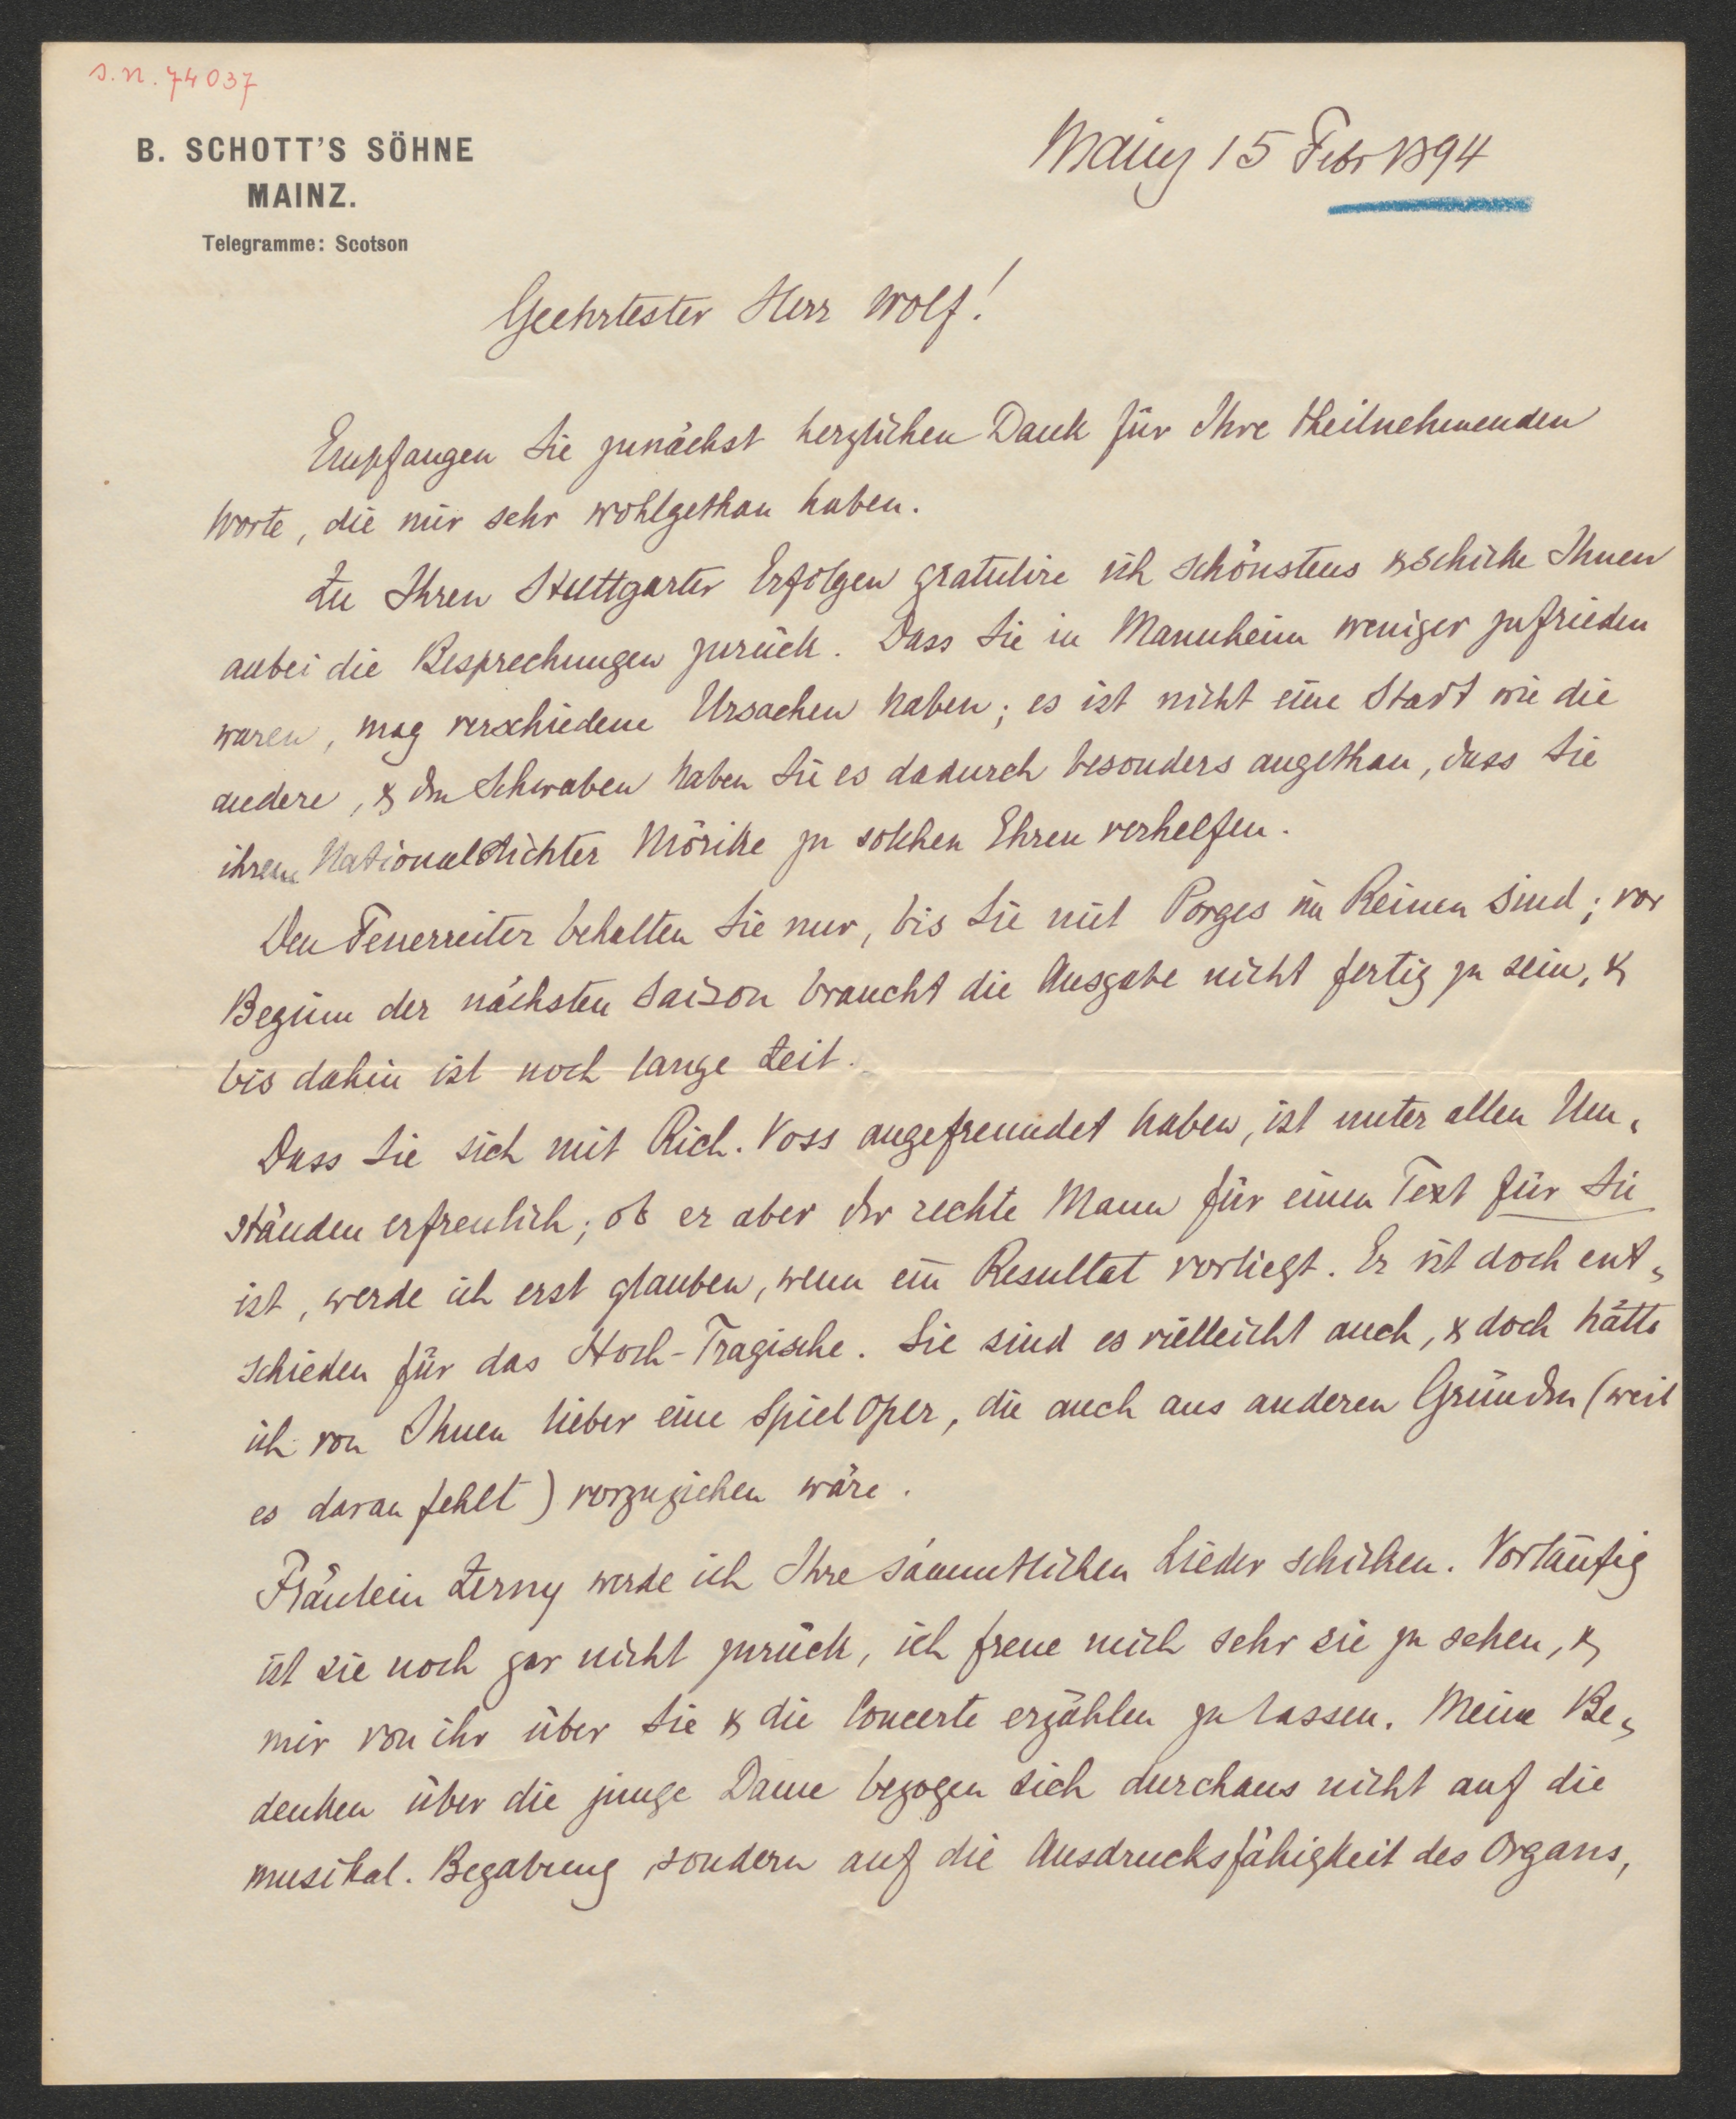 s.n. 74037
B. SCHOTT'S SÖHNE
MAINZ.
Telegramme: Scotson
Mainz 15 Febr 1894
Geehrtester Herr Wolf!
Empfangen Sie zunächst herzlichen Dank für Ihre theilnehmenden
Worte, die mir sehr wohlgethan haben.
Zu Ihren Stuttgarter Erfolgen gratulire ich schönstens & schicke Ihnen
anbei die Besprechungen zurück. Dass Sie in Mannheim weniger zufrieden
waren, mag verschiedene Ursachen haben; es ist nicht eine Stadt wie die
andere, & den Schwaben haben Sie es dadurch besonders angethan, dass Sie
ihrem Nationaldichter Mörike zu solchen Ehren verhelfen.
Den Feuerreiter behalten Sie nur, bis Sie mit Porges im Reinen sind; vor
Beginn der nächsten Saison braucht die Ausgabe nicht fertig zu sein, &
bis dahin ist noch lange Zeit.
Dass Sie sich mit Rich. Voss angefreundet haben, ist unter allen Um-
ständen erfreulich; ob er aber der rechte Mann für einen Text für Sie
ist, werde ich erst glauben, wenn ein Resultat vorliegt. Er ist doch ent-
schieden für das Hoch-Tragische. Sie sind es vielleicht auch, & doch hätte
ich von Ihnen lieber eine Spieloper, die auch aus anderen Gründen (weil
es daran fehlt) vorzuziehen wäre.
Fräulein Zerny werde ich Ihre sämmtlichen Lieder schicken. Vorläufig
ist sie noch gar nicht zurück, ich freue mich sehr sie zu sehen, &
mir von ihr über Sie & die Concerte erzählen zu lassen. Meine Be-
denken über die junge Dame bezogen sich durchaus nicht auf die
musikal. Begabung, sondern auf die Ausdrucksfähigkeit des Organs,